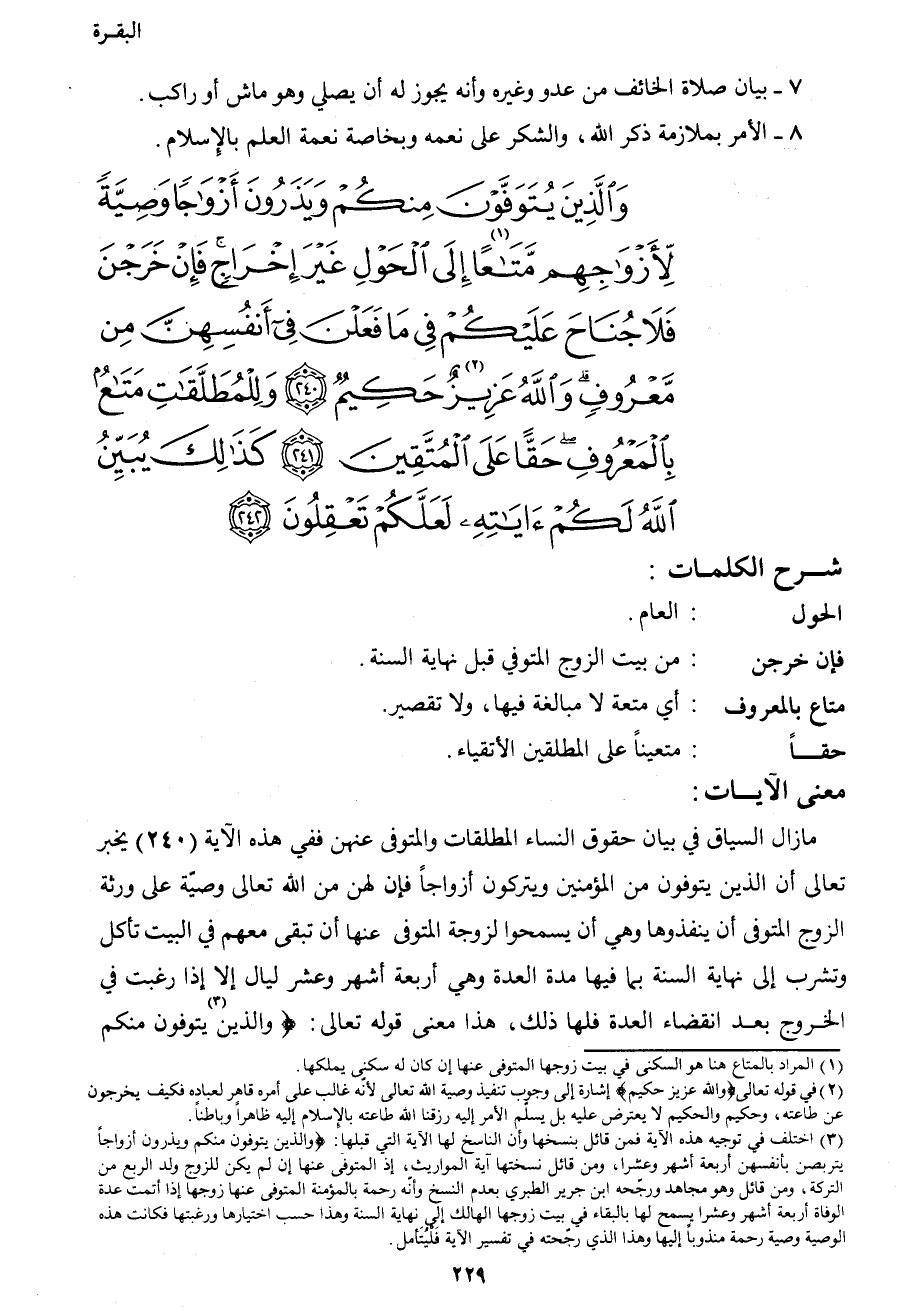 البقـرة
٧ ـ بيان صلاة الخائف من عدو وغيره وأنه يجوز له أن يصلي وهو ماش أو راكب .
٨ ـ الأمر بملازمة ذكر الله، والشكر على نعمه وبخاصة نعمة العلم بالإسلام .
وَٱلَّذِينَ يُتَوَفَّوْنَ مِنكُمْ وَيَذَرُونَ أَزْوَٰجًا وَصِيَّةً
لِّأَزْوَٰجِهِم مَّتَـٰعًا (١) إِلَى ٱلْحَوْلِ غَيْرَ إِخْرَاجٍ ۚ فَإِنْ خَرَجْنَ
فَلَا جُنَاحَ عَلَيْكُمْ فِى مَا فَعَلْنَ فِىٓ أَنفُسِهِنَّ مِن
مَّعْرُوفٍ ۗ وَٱللَّهُ عَزِيزٌ (٢) حَكِيمٌ ﴿٢٤٠﴾ وَلِلْمُطَلَّقَـٰتِ مَتَـٰعٌۢ
بِٱلْمَعْرُوفِ ۖ حَقًّا عَلَى ٱلْمُتَّقِينَ ﴿٢٤١﴾ كَذَٰلِكَ يُبَيِّنُ
ٱللَّهُ لَكُمْ ءَايَـٰتِهِۦ لَعَلَّكُمْ تَعْقِلُونَ ﴿٢٤٢﴾
شـــرح الكلمـات :
الحول : العام .
فإن خرجن : من بيت الزوج المتوفي قبل نهاية السنة .
متاع بالمعروف : أي متعة لا مبالغة فيها، ولا تقصير.
حقـــاً : متعيناً على المطلقين الأتقياء .
معنى الآيـــات :
مازال السياق في بيان حقوق النساء المطلقات والمتوفى عنهن ففي هذه الآية (٢٤٠) يخبر
تعالى أن الذين يتوفون من المؤمنين ويتركون أزواجاً فإن لهن من الله تعالى وصيّة على ورثة
الزوج المتوفى أن ينفذوها وهي أن يسمحوا لزوجة المتوفى عنها أن تبقى معهم في البيت تأكل
وتشرب إلى نهاية السنة بما فيها مدة العدة وهي أربعة أشهر وعشر ليال إلا إذا رغبت في
الخروج بعـد انقضاء العدة فلها ذلك، هذا معنى قوله تعالى: ﴿ والذين (٣) يتوفون منكم
(١) المراد بالمتاع هنا هو السكنى في بيت زوجها المتوفى عنها إن كان له سكنى يملكها.
(٢) في قوله تعالى﴿والله عزيز حكيم﴾ إشارة إلى وجوب تنفيذ وصية الله تعالى لأنّه غالب على أمره قاهر لعباده فكيف يخرجون
عن طاعته، وحكيم والحكيم لا يعترض عليه بل يسلّم الأمر إليه رزقنا الله طاعته بالإسلام إليه ظاهراً وباطناً.
(٣) اختلف في توجيه هذه الآية فمن قائل بنسخها وأن الناسخ لها الآية التي قبلها: ﴿والذين يتوفون منكم ويذرون أزواجاً
يتربصن بأنفسهن أربعة أشهر وعشرا، ومن قائل نسختها آية المواريث، إذ المتوفى عنها إن لم يكن للزوج ولد الربع من
التركة، ومن قائل وهو مجاهد ورجّحه ابن جرير الطبري بعدم النسخ وأنّه رحمة بالمؤمنة المتوفى عنها زوجها إذا أتمت عدة
الوفاة أربعة أشهر وعشرا يسمح لها بالبقاء في بيت زوجها الهالك إلى نهاية السنة وهذا حسب اختيارها ورغبتها فكانت هذه
الوصية وصية رحمة مندوباً إليها وهذا الذي رجّحته في تفسير الآية فَلْيُتَأمل.
٢٢٩